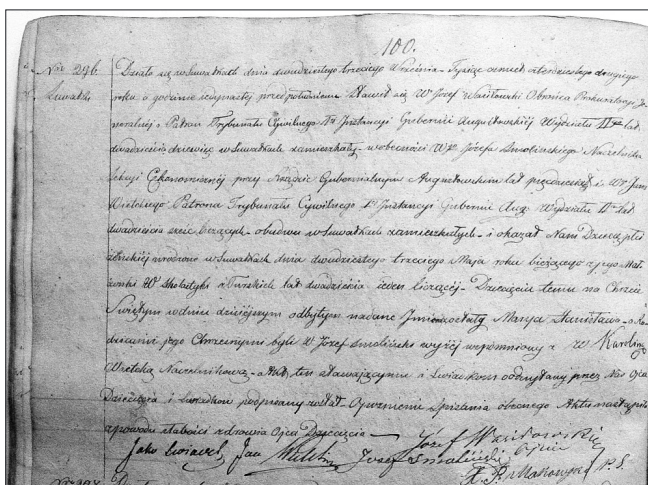 100.
Nro 296. Działo się w Suwałkach dnia dwudziestego trzeciego Września Tysiąc ośmset czterdziestego drugiego
Suwałki roku o godzinie jedynastej przed południem Stawił się W. Józef Wasiłowski Obrońca Prokuratoryi Je
neralnej i Patron Trybunału Cywilnego Iej Instancyi Gubernii Augustowskiej Wydziału II lat
dwadzieścia dziewięć w Suwałkach zamieszkały w obecności W. Józefa Smolińskiego Naczelnika
Sekcyi Ekonomicznej przy Rządzie Gubernialnym Augustowskim lat pięćdziesiąt i W. Jana
Patrona Trybunału Cywilnego Iej Instancyi Gubernii Aug. Wydziału II lat
dwadzieścia sześć liczących obudwu w Suwałkach zamieszkałych i okazał Nam Dziecię płci
żeńskiej urodzone w Suwałkach dnia dwudziestego trzeciego Maja roku bieżącego z jego Mał
żonki W. Skolastyki z Turskich lat dwadzieścia jeden liczącej Dziecięciu temu na Chrzcie
Świętym w dniu dzisiejszym odbytym nadane Imiona zostały Marya Stanisława a Ro
dzicami jego Chrzestnymi byli W. Józef Smoliński wyżej wspomniony i W. Karolina
Naczelnikowa Akt ten stawającym i świadkom odczytany przez Nas Ojca
Dziecięcia i świadków podpisany został Opóźnienie spisania obecnego Aktu nastąpiło
z powodu słabości zdrowia Ojca Dziecięcia
Józef
Jako świadek Jan Józef Smoliński Ojciec
X. P. Makowski P. S.